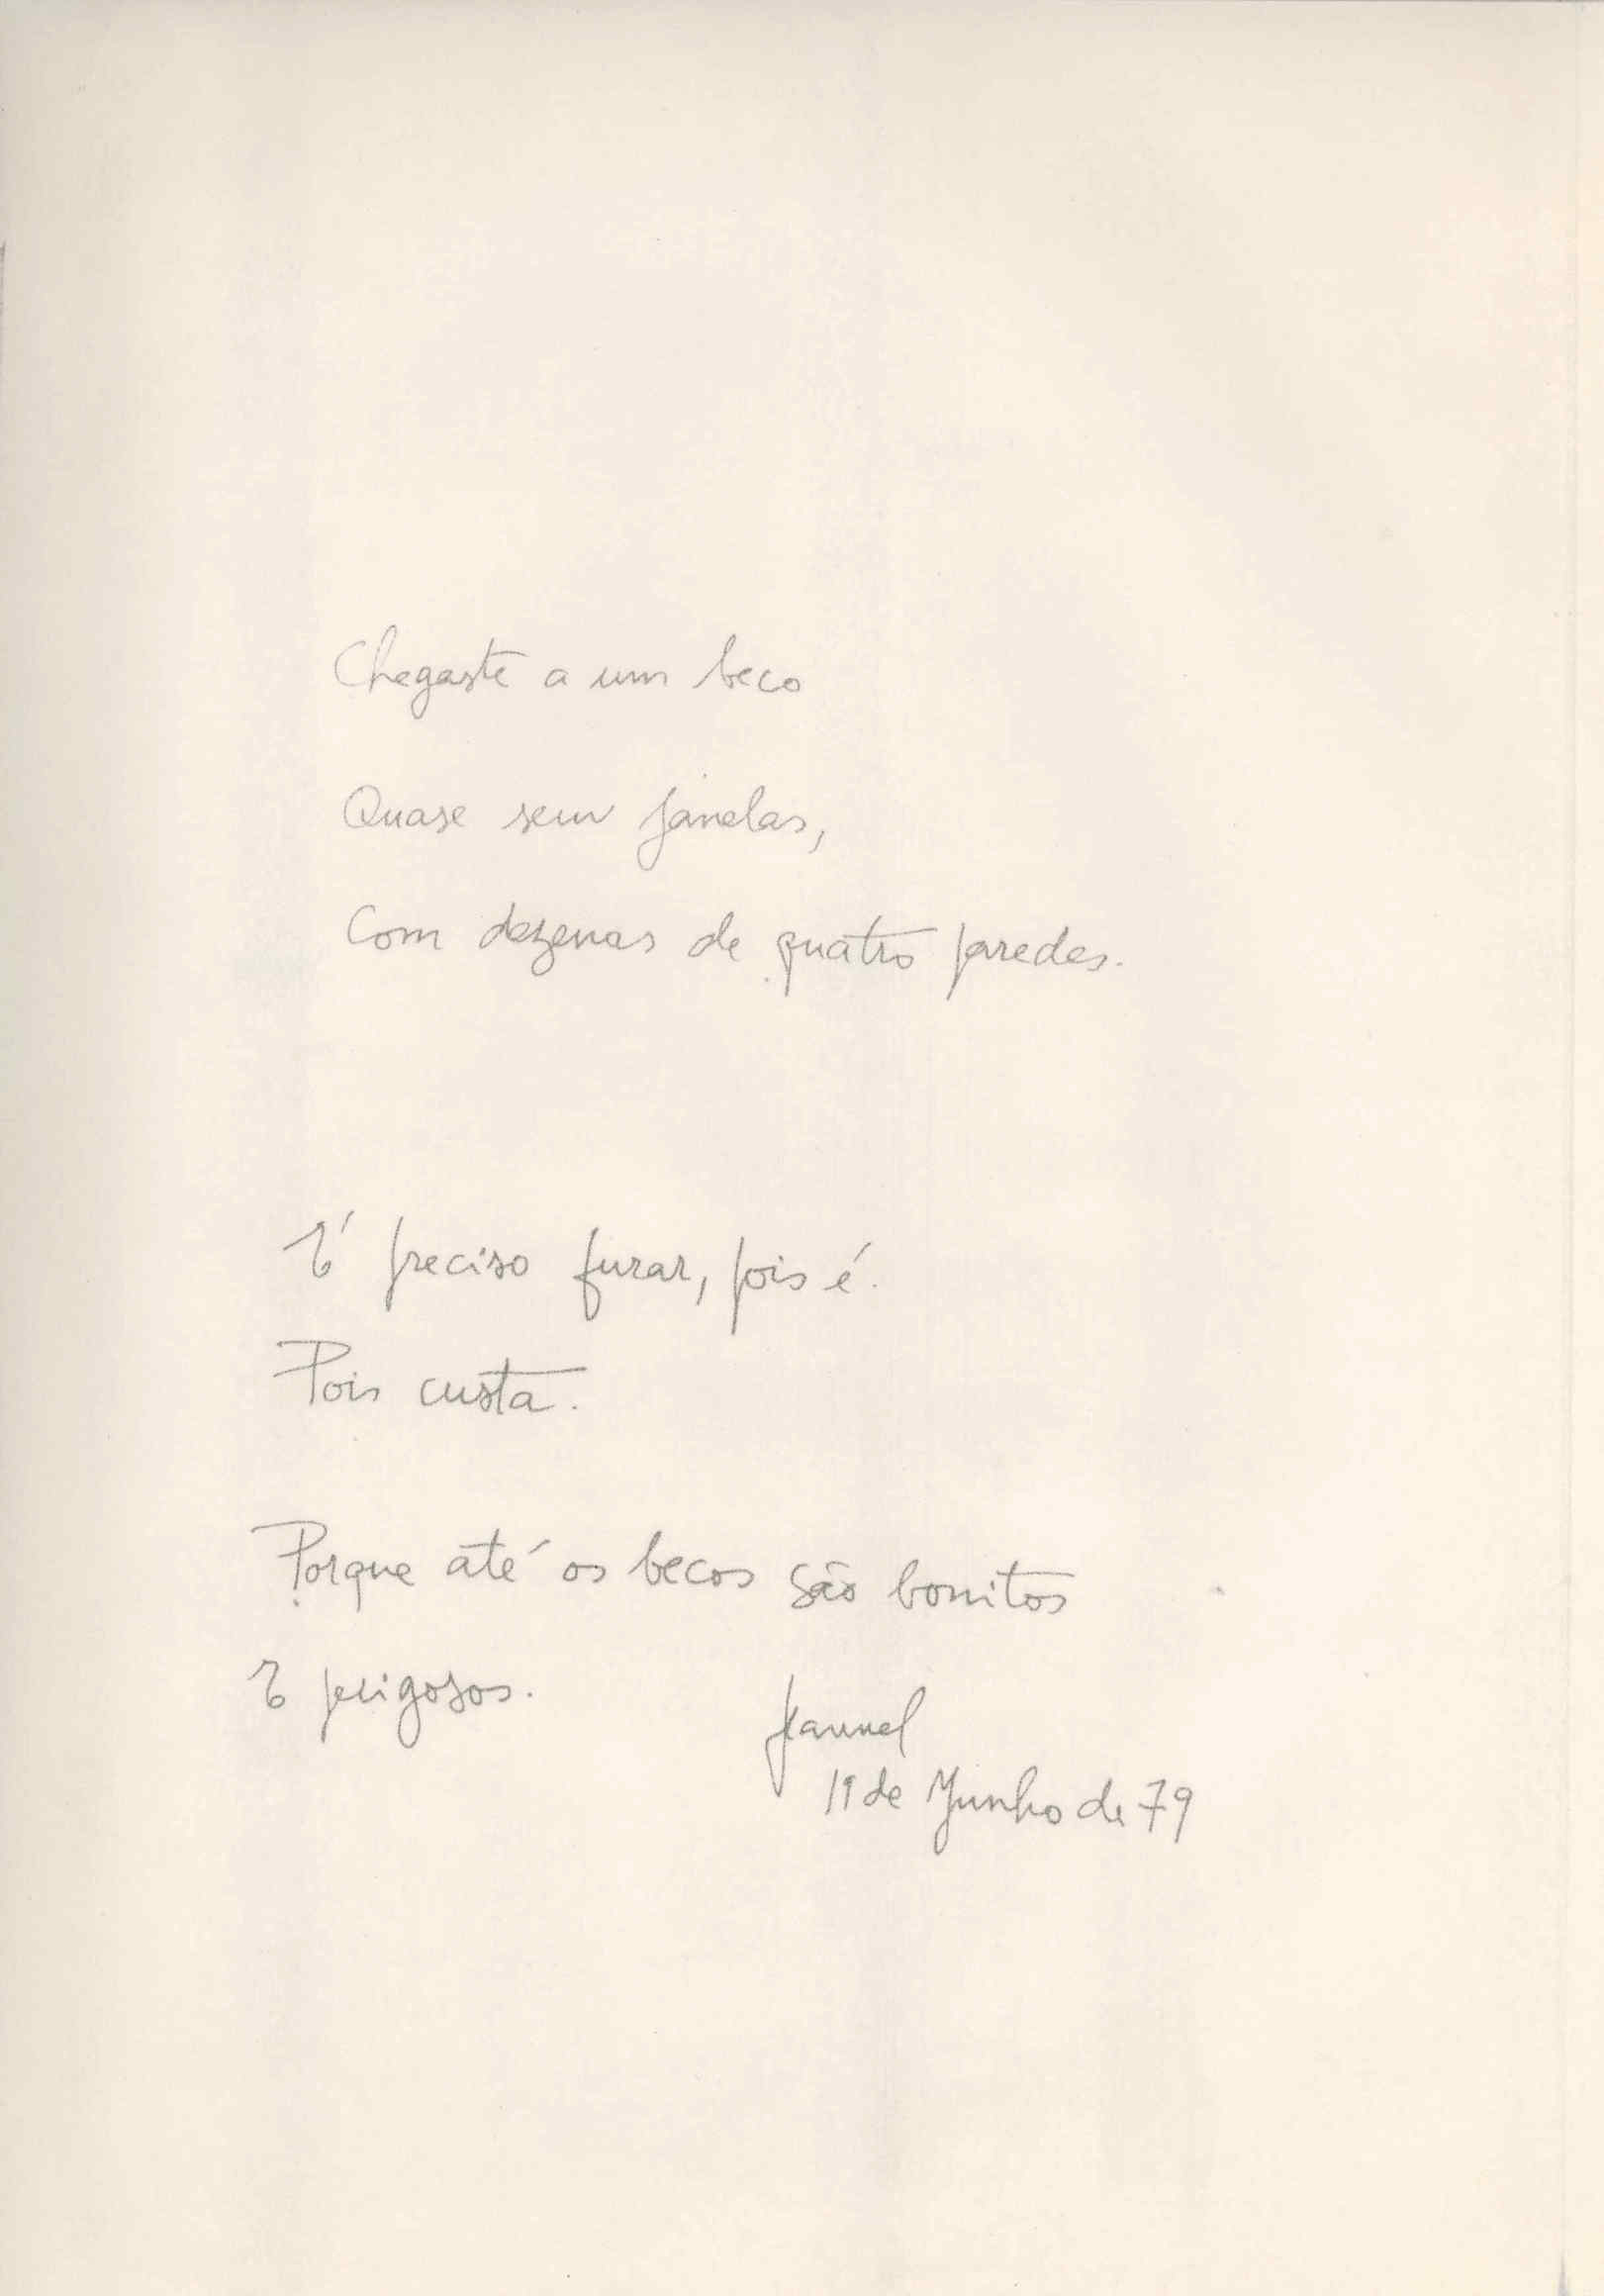 Chegaste a um beco
Quase sem janelas,
Com dezenas de quatro paredes.
É preciso furar, pois é.
Pois custa.
Porque até os becos são bonitos
E perigosos.
de Junho de 79